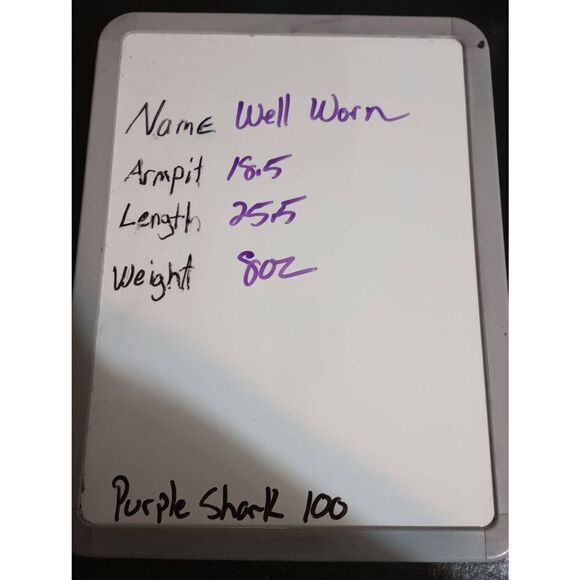 Name Well Worn
Armpit 18.5
Length 25.5
Weight 8oz
Purple Shark 100